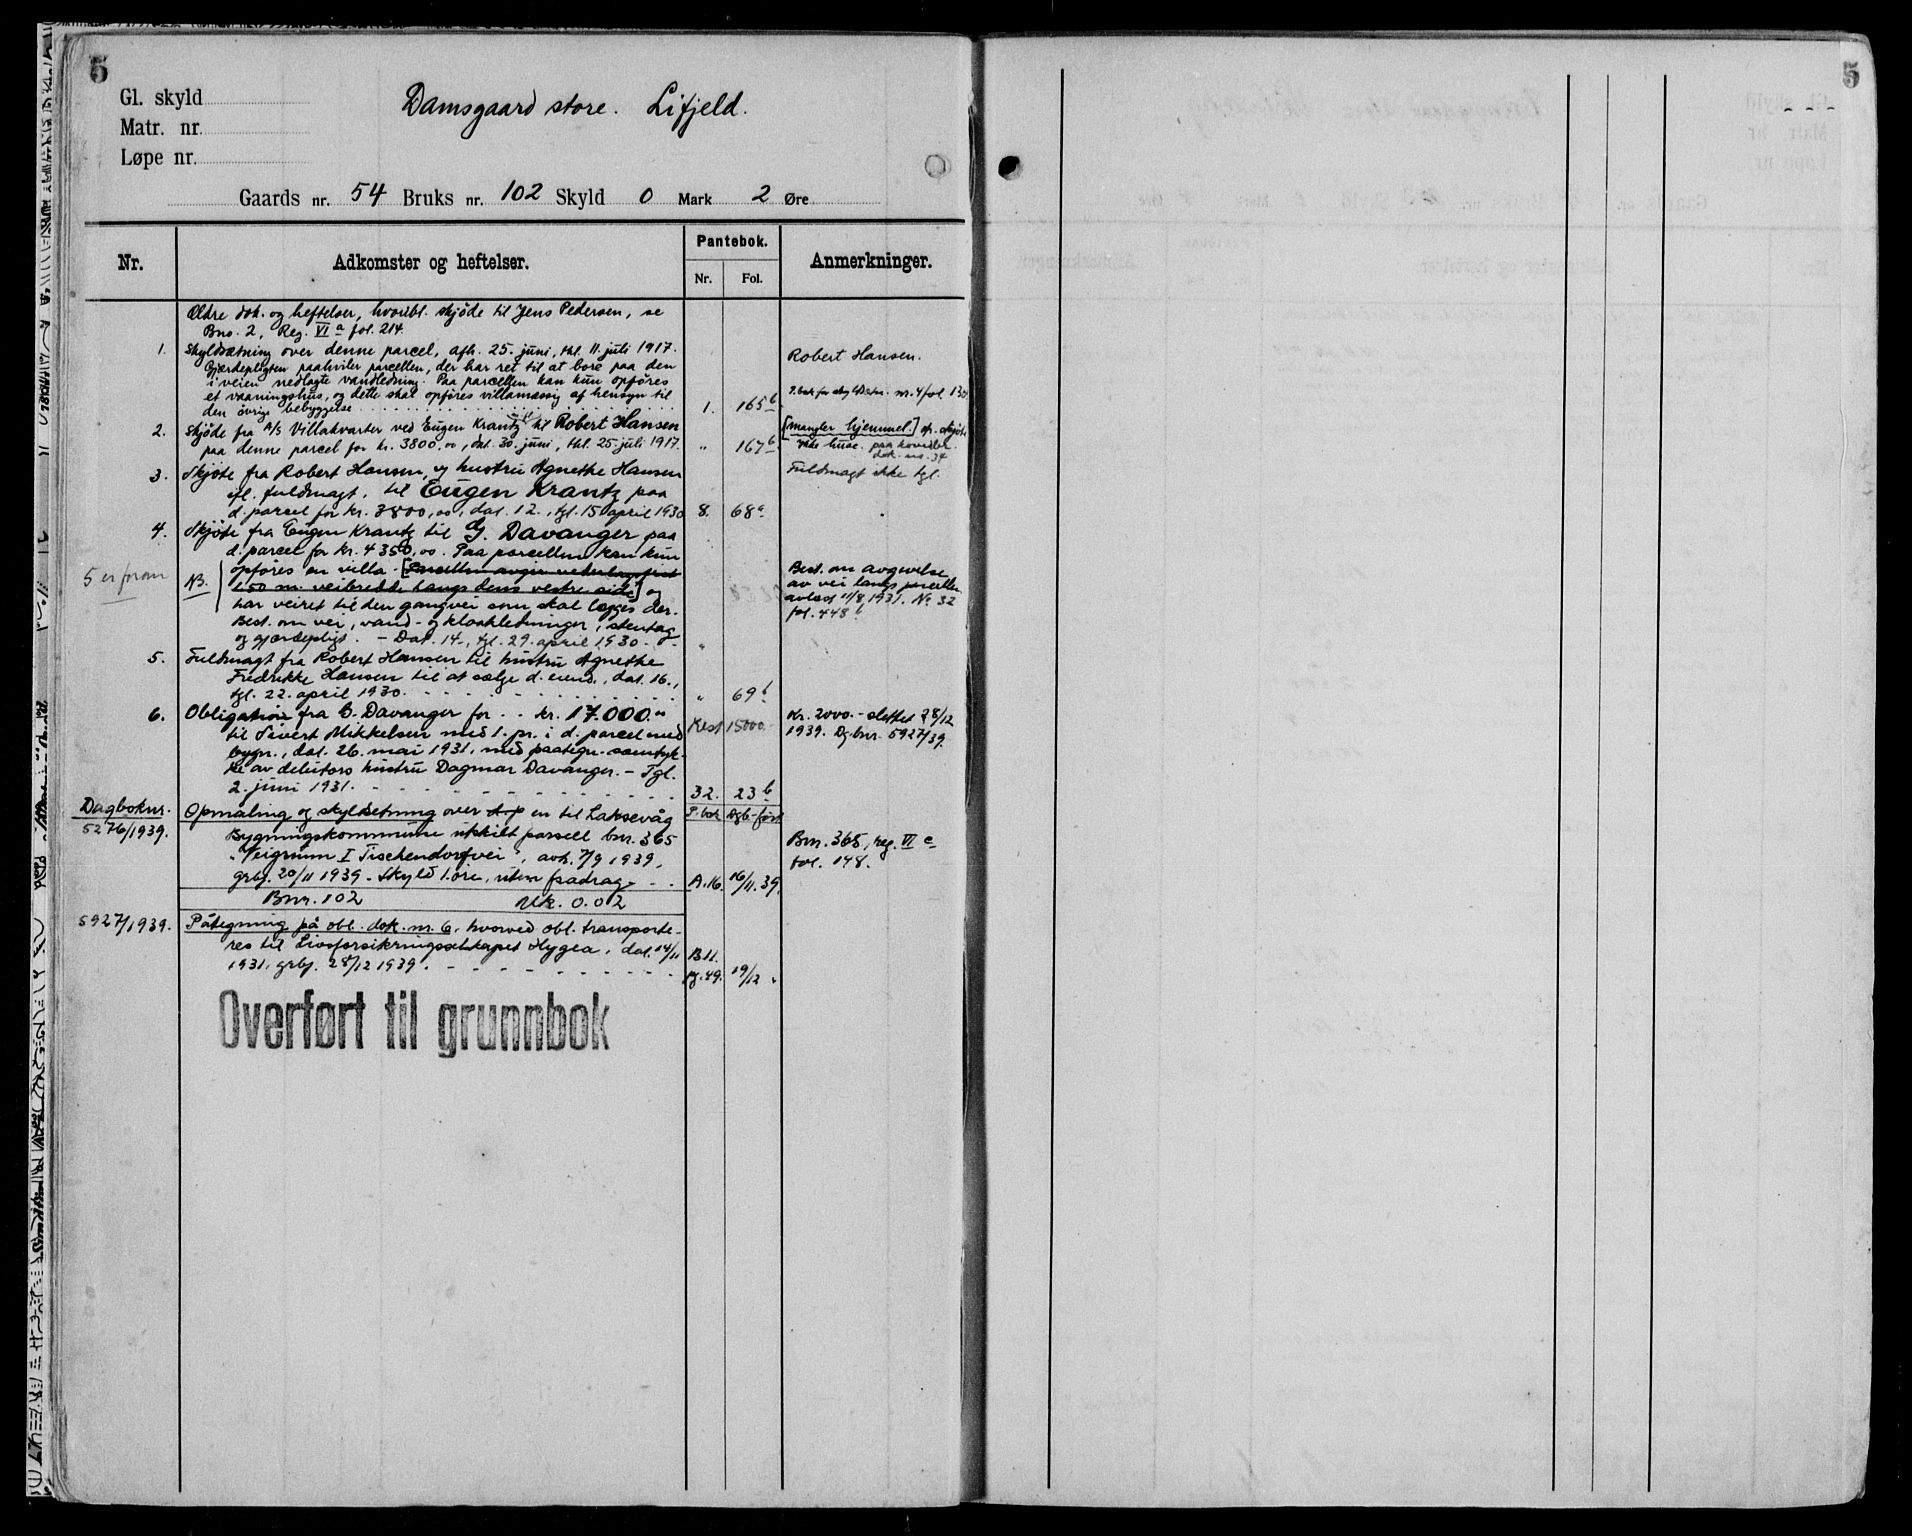 5
Gl. skyld
Damsgaard store. Lifjeld.
Matr. nr.
Løpe nr.
Gaards nr. 54 Bruks nr. 102 Skyld 0 Mark 2 Øre
Nr. Adkomster og heftelser. Pantebok. Anmerkninger.
Nr. Fol.
Ældre dok. og heftelser, hvoribl. skjøde til Jens Pedersen, se
Bno. 2, Reg. VI a fol. 214.
1. Skyldsætning over denne parcel, afh. 25. juni, thl. 11. juli 1917.
Gjærdepligten paahviler parcellen, der har ret til at bore paa den
i veien nedlagte vandledning. Paa parcellen kan kun opføres
et vaaningshus, og dette skal opføres villamæssig af hensyn til
den øvrige bebyggelse 1. 165 b
Robert Hansen.
2. Skjøde fra A/S Villakvarter ved Eugen Krantz til Robert Hansen
paa denne parcel for kr. 3800,00, dat. 30. juni, thl. 25. juli 1917. " 167 b
[mangler hjemmel.]
3. Skjøte fra Robert Hansen, og hustru Agnethe Hansen
ifl. fuldmagt, til Eugen Krantz paa
d. parcel for kr. 3800,00, dat. 12., tgl. 15 april 1930 8. 68 a
Fuldmagt ikke tgl.
4. Skjøte fra Eugen Krantz til G. Davanger paa
d. parcel for kr. 4350,00. Paa parcellen kan kun
5 er foran NB. opføres en villa. [Parcellen avgir vederlagsfrit
1.50 m. veibredde langs dens vestre side] og
har veiret til den gangvei som skal lægges der.
Best. om vei, vand- og kloakledninger, stentag
og gjærdepligt. - Dat. 14., tgl. 29. april 1930. "
Best. om avgivelse
av vei langs parcellen
avlæst 11/8 1931. No 32
fol. 448 b
5. Fuldmagt fra Robert Hansen til hustru Agnethe
Fredrikke Hansen til at sælge d. eiend., dat. 16.,
tgl. 22. april 1930. " 69 b
6. Obligation fra G. Davanger for kr. 17.000.00
til Sivert Mikkelsen med 1. pr. i d. parcel med
bygn., dat. 26. mai 1931, med paategn. samtyk-
ke av debitors hustru Dagmar Davanger. - Tgl.
2. juni 1931. 32. 23 b
Rest 15000.-
Kr. 2000.- slettet 28/12
1939. Dgbnr. 5927/39.
Dagboknr.
5276/1939.
P. bok Dgb-ført
Opmåling og skyldsetning over en til Laksevåg
Bygningskommune utskilt parsell bnr. 365
"Veigrunn I Tischendorfvei", avh. 7/9 1939,
grbj. 20/11 1939. Skyld 1 øre, uten fradrag. A.16. 16/11.39.
Bnr. 365, reg. VI c
fol. 148.
Bnr. 102 Mk. 0.02
5927/1939. Påtegning på obl. dok. nr. 6, hvorved obl. transporte-
res til Livsforsikringsselskapet Hygea, dat. 14/11
1931, grbj. 28/12 1939. B 11.
pg. 49. 19/12 "
Overført til grunnbok
5